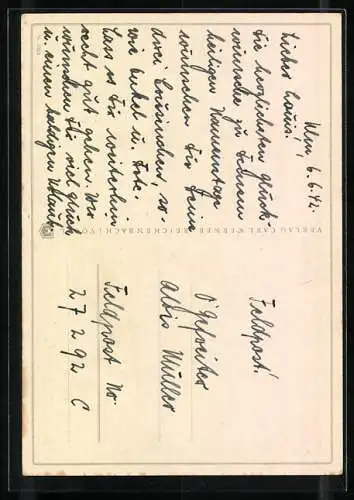 Ulm, 6.6.42.
Lieber Louis!
die herzlichsten Glück-
wünsche zu Deinem
Namenstage
wünschen Dir Deine
drei Cousinchen, so-
wie Onkel u. Tote.
Lass es Dir weiterhin
recht gut gehen. Wir
wünschen Dir viel Glück
u. einen baldigen Urlaub
VERLAG CARL WERNER, REICHENBACH I/VO
Feldpost!
O'Gefreiter
Alois Müller
Feldpost Nr.
27292 C